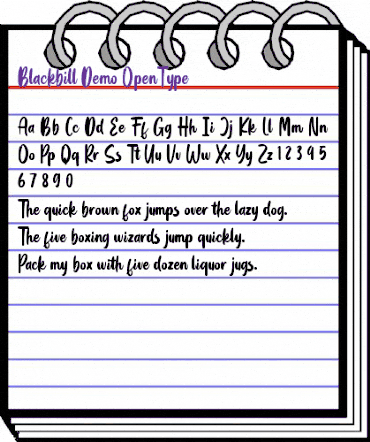 Blackbill Demo OpenType
Aa Bb Cc Dd Ee Ff Gg Hh Ii Jj Kk Ll Mm Nn
Oo Pp Qq Rr Ss Tt Uu Vv Ww Xx Yy Zz 1 2 3 4 5
6 7 8 9 0
The quick brown fox jumps over the lazy dog.
The five boxing wizards jump quickly.
Pack my box with five dozen liquor jugs.